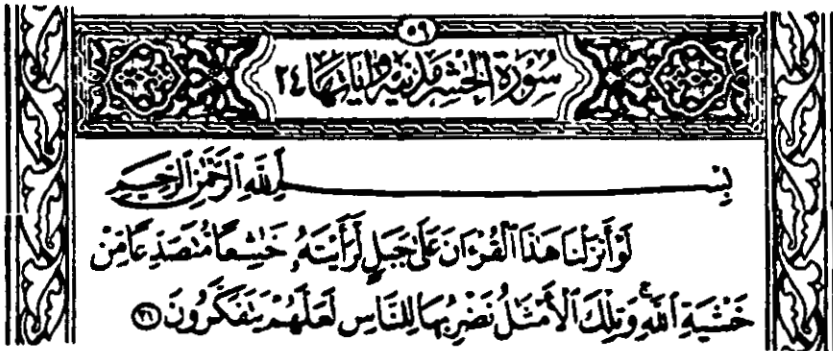 ٥٩
سُورَةُ الحَشْرِ مَدَنِيَّة وَآيَاتُهَا ٢٤
بِسْمِ اللَّهِ الرَّحْمَٰنِ الرَّحِيمِ
لَوْ أَنزَلْنَا هَٰذَا ٱلْقُرْءَانَ عَلَىٰ جَبَلٍ لَّرَأَيْتَهُۥ خَٰشِعًا مُّتَصَدِّعًا مِّنْ
خَشْيَةِ ٱللَّهِۚ وَتِلْكَ ٱلْأَمْثَٰلُ نَضْرِبُهَا لِلنَّاسِ لَعَلَّهُمْ يَتَفَكَّرُونَ ﴿٢١﴾